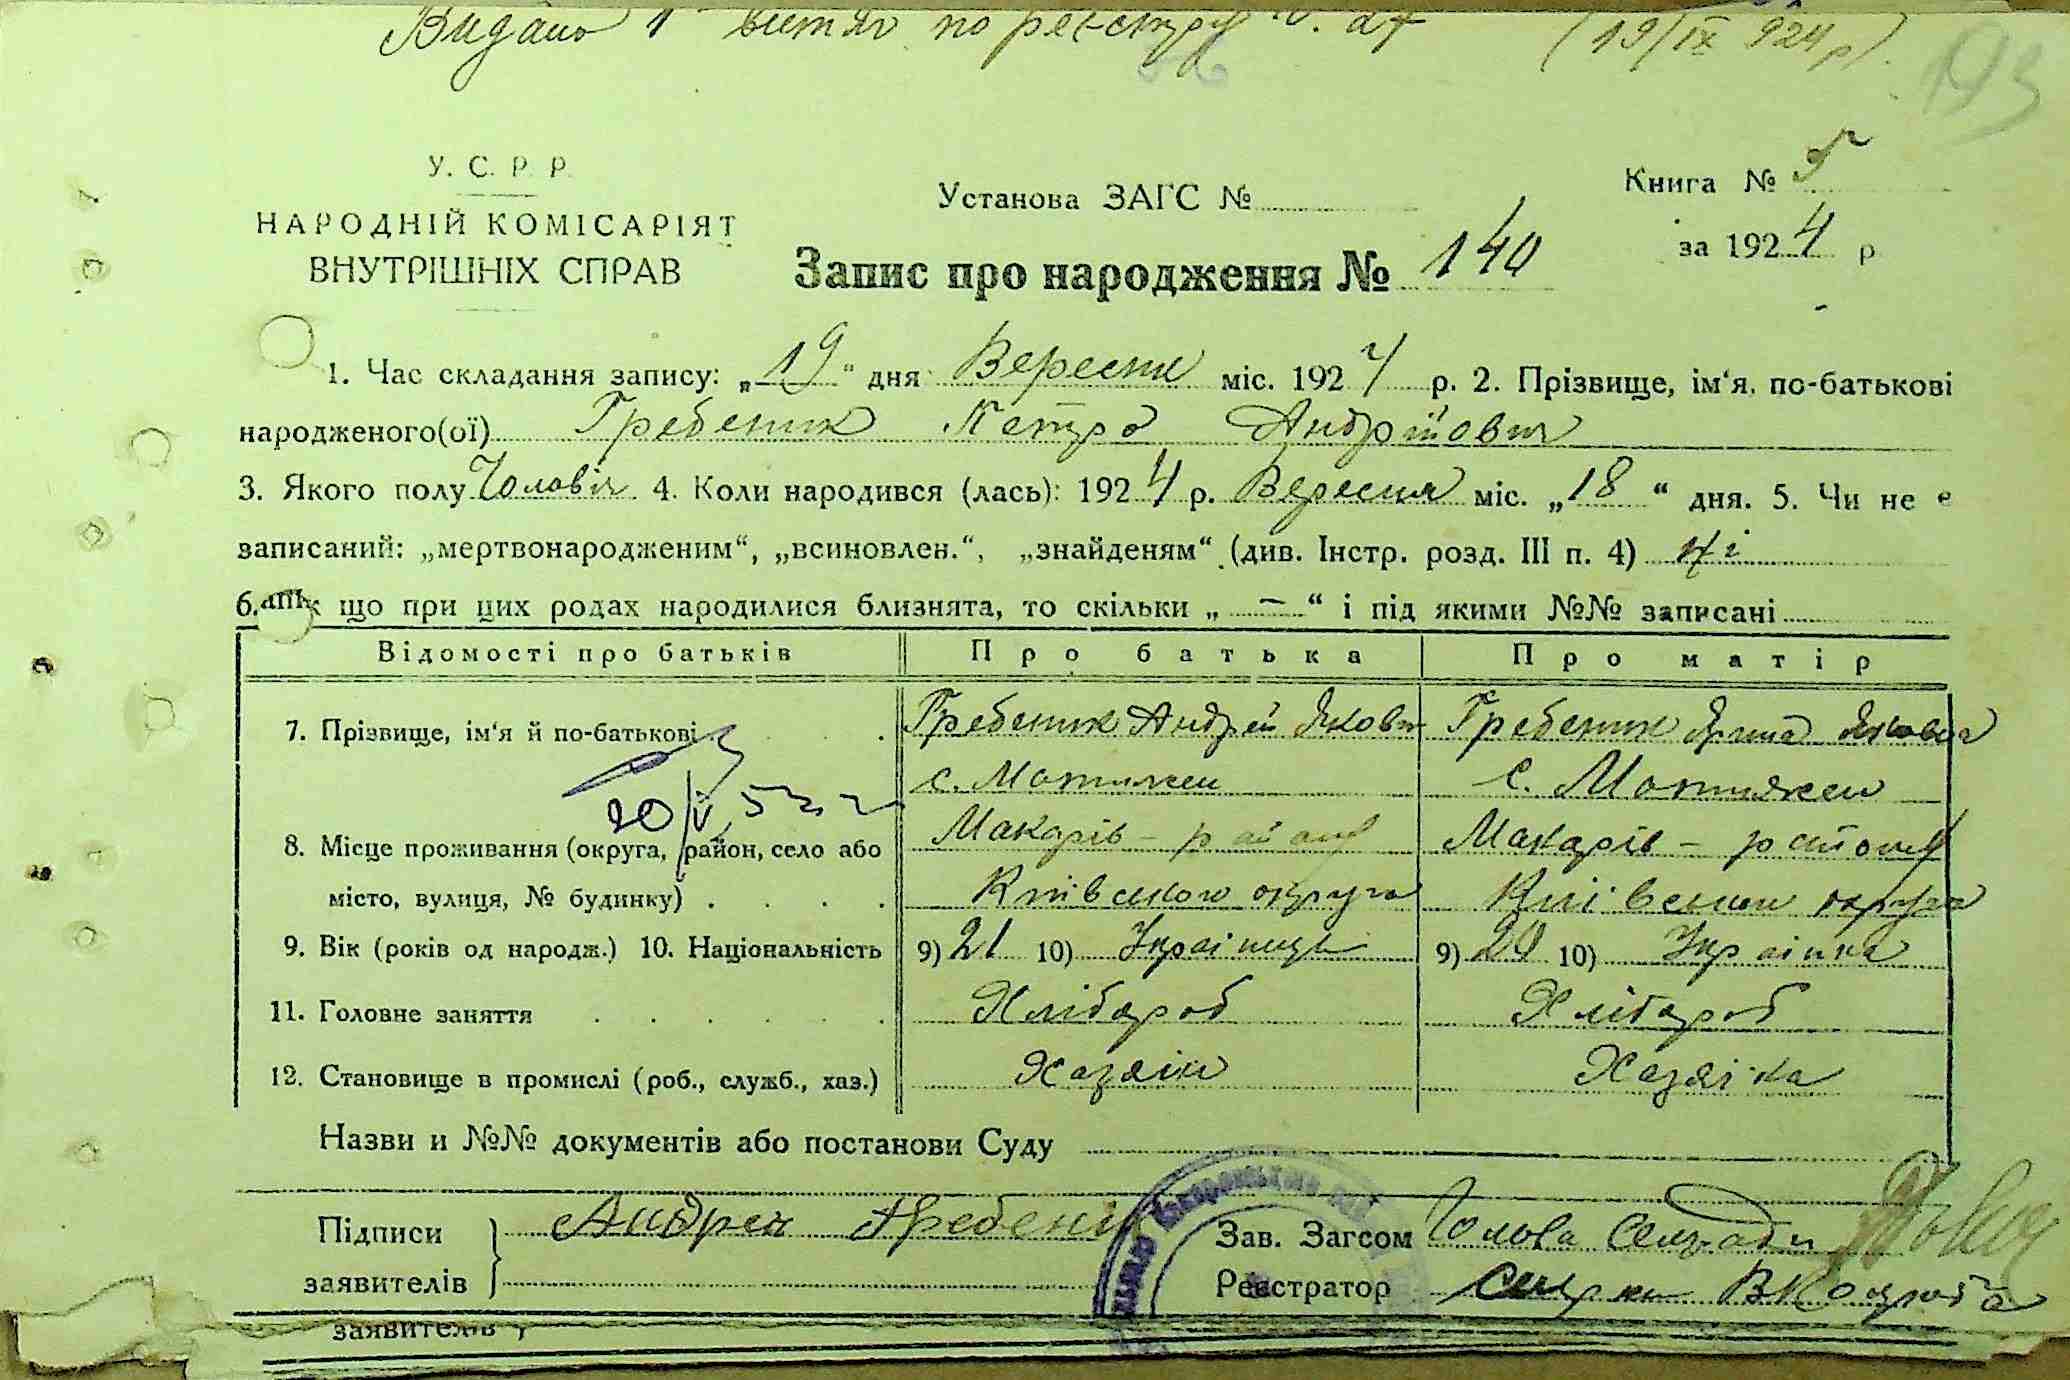 Видано 1 витяг по реєстру № 27 (19/IX 924 р).
193
У. С. Р. Р.
НАРОДНІЙ КОМІСАРІЯТ
ВНУТРІШНІХ СПРАВ
Установа ЗАГС №
Книга № 5
за 1924 р
Запис про народження № 140
1. Час складання запису: „19“ дня Вересня міс. 1924 р. 2. Прізвище, ім‘я, по-батькові
народженого(ої) Гребеник Петро Андрійович
3. Якого полу Чоловіч 4. Коли народився (лась): 1924 р. Вересня міс. „18“ дня. 5. Чи не є
записаний: „мертвонародженим“, „всиновлен.“, „знайденям“ (див. Інстр. розд. III п. 4) Ні
6. що при цих родах народилися близнята, то скільки „ — “ і під якими №№ записані
Відомості про батьків Про батька Про матір
7. Прізвище, ім‘я й по-батькові Гребеник Андрей Якови Гребеник Ярина Яковна
с. Мотижен с. Мотижен
20/V 53 г
8. Місце проживання (округа, район, село або Макарів - району Макарів - району
місто, вулиця, № будинку) Київського округа Київського округа
9. Вік (років од народж.) 10. Національність 9) 21 10) Українець 9) 20 10) Українка
11. Головне заняття Хлібороб Хлібороб
12. Становище в промислі (роб., служб., хаз.) Хазяїн Хазяїка
Назви и №№ документів або постанови Суду
Підписи Андрей Гребени Зав. Загсом Голова Сельради
заявителів Реєстратор
заявителів